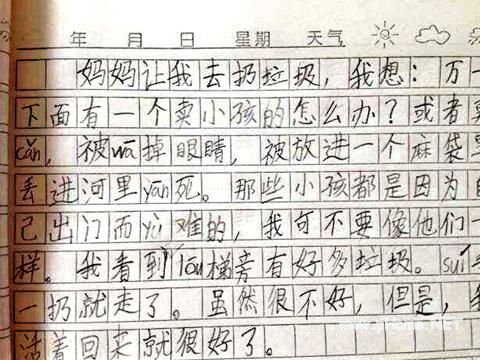 年 月 日 星期 天气
妈妈让我去扔垃圾，我想：万一
下面有一个卖小孩的怎么办？或者
cǎn，被wā掉眼睛，被放进一个麻袋里
丢进河里yān死。那些小孩都是因为自
己出门而yù难的，我可不要像他们一
样。我看到lóu梯旁有好多垃圾。suí手
一扔就走了。虽然很不好，但是，我
活着回来就很好了。